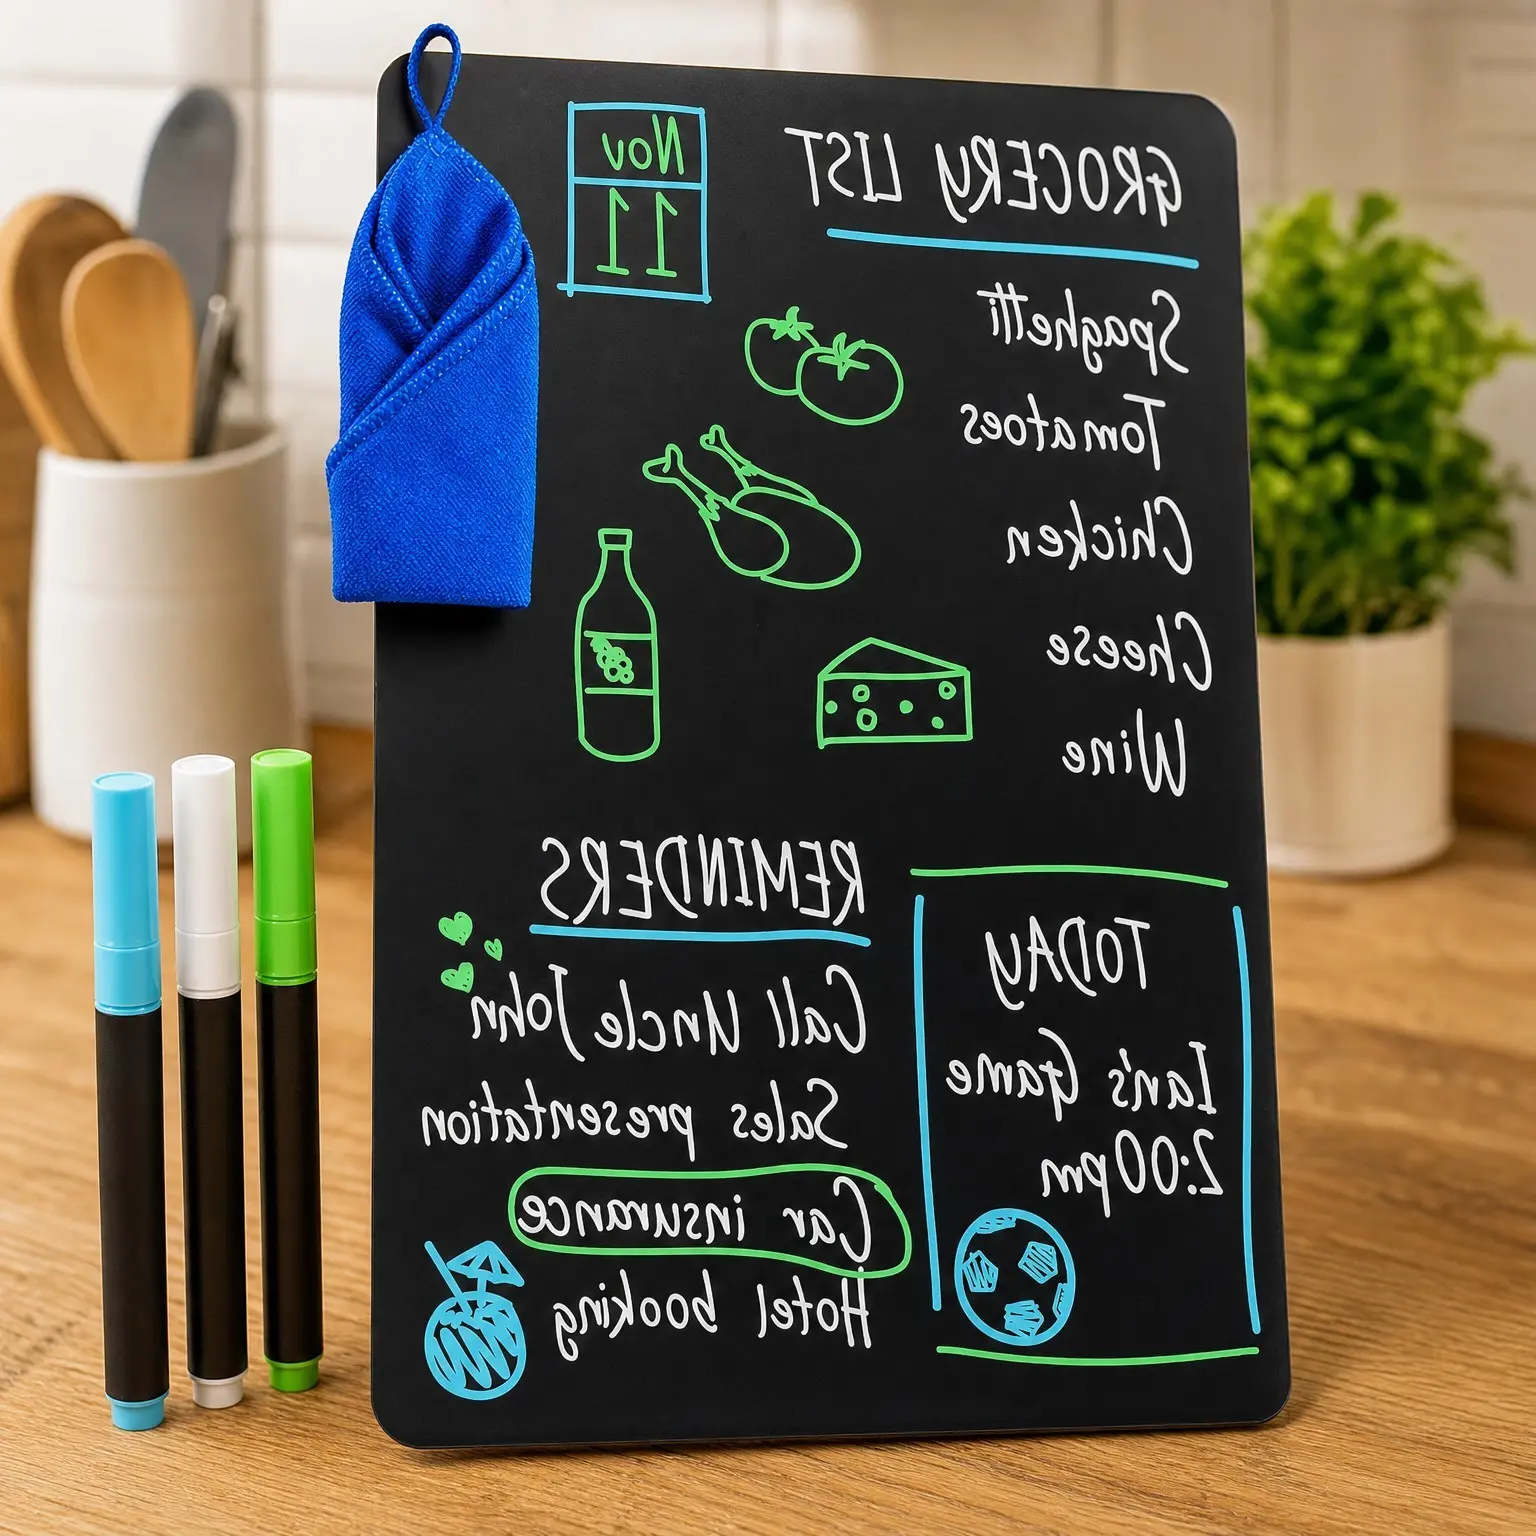 GROCERY LIST
Spaghetti
Tomatoes
Chicken
Cheese
Wine
Nov
11
REMINDERS
Call Uncle John
Sales presentation
Car insurance
Hotel booking
TODAY
Ian's Game
2:00pm